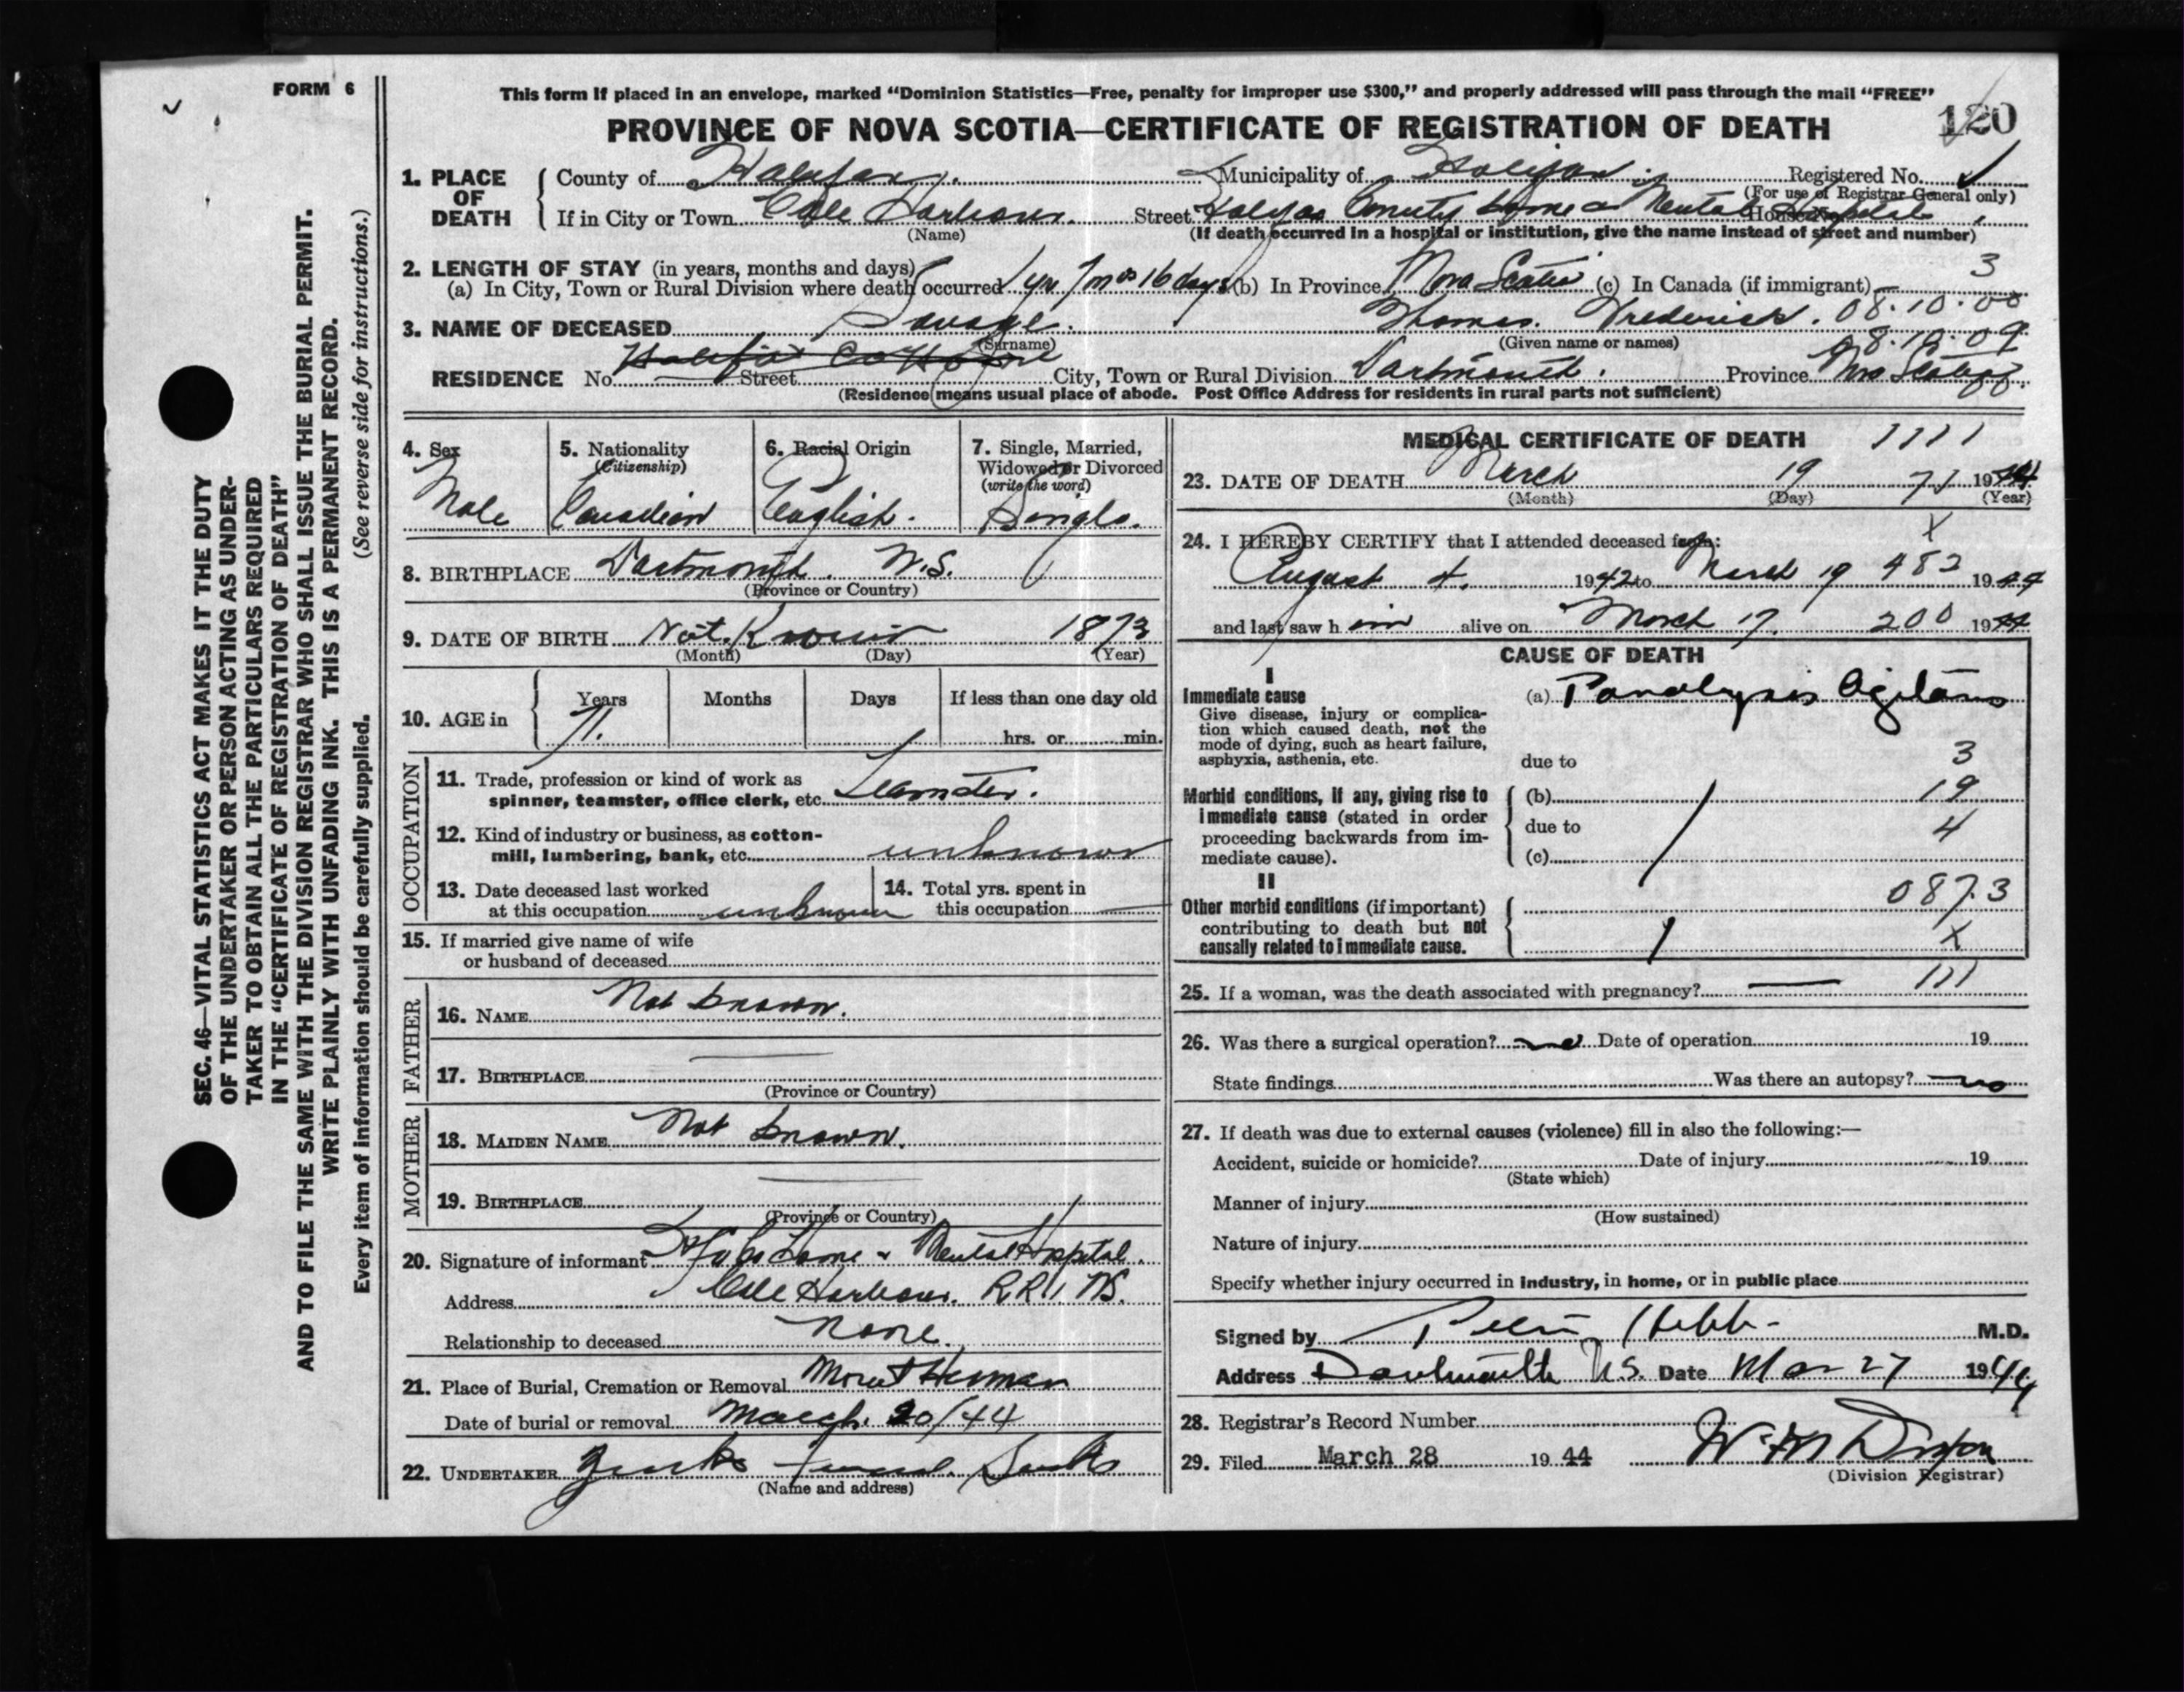 FORM 6
This form if placed in an envelope, marked "Dominion Statistics—Free, penalty for improper use $300," and properly addressed will pass through the mail "FREE"
PROVINCE OF NOVA SCOTIA—CERTIFICATE OF REGISTRATION OF DEATH
120
1. PLACE OF DEATH
County of Halifax. Municipality of Halifax. Registered No.
(For use of Registrar General only)
If in City or Town Cole Harbour. Street Halifax County Home & Mental Hospital House No.
(Name) (If death occurred in a hospital or institution, give the name instead of street and number)
2. LENGTH OF STAY (in years, months and days)
(a) In City, Town or Rural Division where death occurred 1 yr. 7 mos 16 days (b) In Province Nova Scotia (c) In Canada (if immigrant) — 3
3. NAME OF DECEASED Savage. Thomas. Frederick. 08.10.00
(Surname) (Given name or names) 08.10.09
Halifax Co Home
RESIDENCE No. Street City, Town or Rural Division Dartmouth. Province
(Residence means usual place of abode. Post Office Address for residents in rural parts not sufficient)
4. Sex
Male
5. Nationality
(Citizenship)
Canadian
6. Racial Origin
English.
7. Single, Married,
Widowed or Divorced
(write the word)
Single.
8. BIRTHPLACE Dartmouth. N.S.
(Province or Country)
9. DATE OF BIRTH Not Known 1873
(Month) (Day) (Year)
10. AGE in
Years Months Days If less than one day old
71. hrs. or min.
OCCUPATION
11. Trade, profession or kind of work as
spinner, teamster, office clerk, etc. Teamster.
12. Kind of industry or business, as cotton-
mill, lumbering, bank, etc. unknown
13. Date deceased last worked
at this occupation unknown
14. Total yrs. spent in
this occupation
15. If married give name of wife
or husband of deceased
FATHER
16. NAME Not known.
17. BIRTHPLACE —
(Province or Country)
MOTHER
18. MAIDEN NAME Not known.
19. BIRTHPLACE —
(Province or Country)
20. Signature of informant Hfx Co Home & Mental Hospital.
Address Cole Harbour. RR1, NS.
Relationship to deceased None.
21. Place of Burial, Cremation or Removal Mount Herman
Date of burial or removal March. 20/44
22. UNDERTAKER
(Name and address)
MEDICAL CERTIFICATE OF DEATH 1111
23. DATE OF DEATH March 19 71 1944
(Month) (Day) (Year)
X
24. I HEREBY CERTIFY that I attended deceased from:
August 4. 1942 to March 19 482 1944
and last saw him alive on March 17. 200 1944
CAUSE OF DEATH
I
Immediate cause
Give disease, injury or complica-
tion which caused death, not the
mode of dying, such as heart failure,
asphyxia, asthenia, etc.
(a) Paralysis Agitans
due to 3
Morbid conditions, if any, giving rise to
immediate cause (stated in order
proceeding backwards from im-
mediate cause).
(b) 19
due to 4
(c)
II
Other morbid conditions (if important)
contributing to death but not
causally related to immediate cause.
087.3
X
25. If a woman, was the death associated with pregnancy? — 111
26. Was there a surgical operation? no Date of operation 19
State findings Was there an autopsy? no
27. If death was due to external causes (violence) fill in also the following:—
Accident, suicide or homicide? Date of injury 19
(State which)
Manner of injury
(How sustained)
Nature of injury
Specify whether injury occurred in industry, in home, or in public place
Signed by Hebb M.D.
Address Dartmouth N.S. Date Mar 27 1944
28. Registrar's Record Number
29. Filed March 28 19 44
(Division Registrar)
SEC. 46—VITAL STATISTICS ACT MAKES IT THE DUTY
OF THE UNDERTAKER OR PERSON ACTING AS UNDER-
TAKER TO OBTAIN ALL THE PARTICULARS REQUIRED
IN THE "CERTIFICATE OF REGISTRATION OF DEATH"
AND TO FILE THE SAME WITH THE DIVISION REGISTRAR WHO SHALL ISSUE THE BURIAL PERMIT.
WRITE PLAINLY WITH UNFADING INK. THIS IS A PERMANENT RECORD.
Every item of information should be carefully supplied. (See reverse side for instructions.)